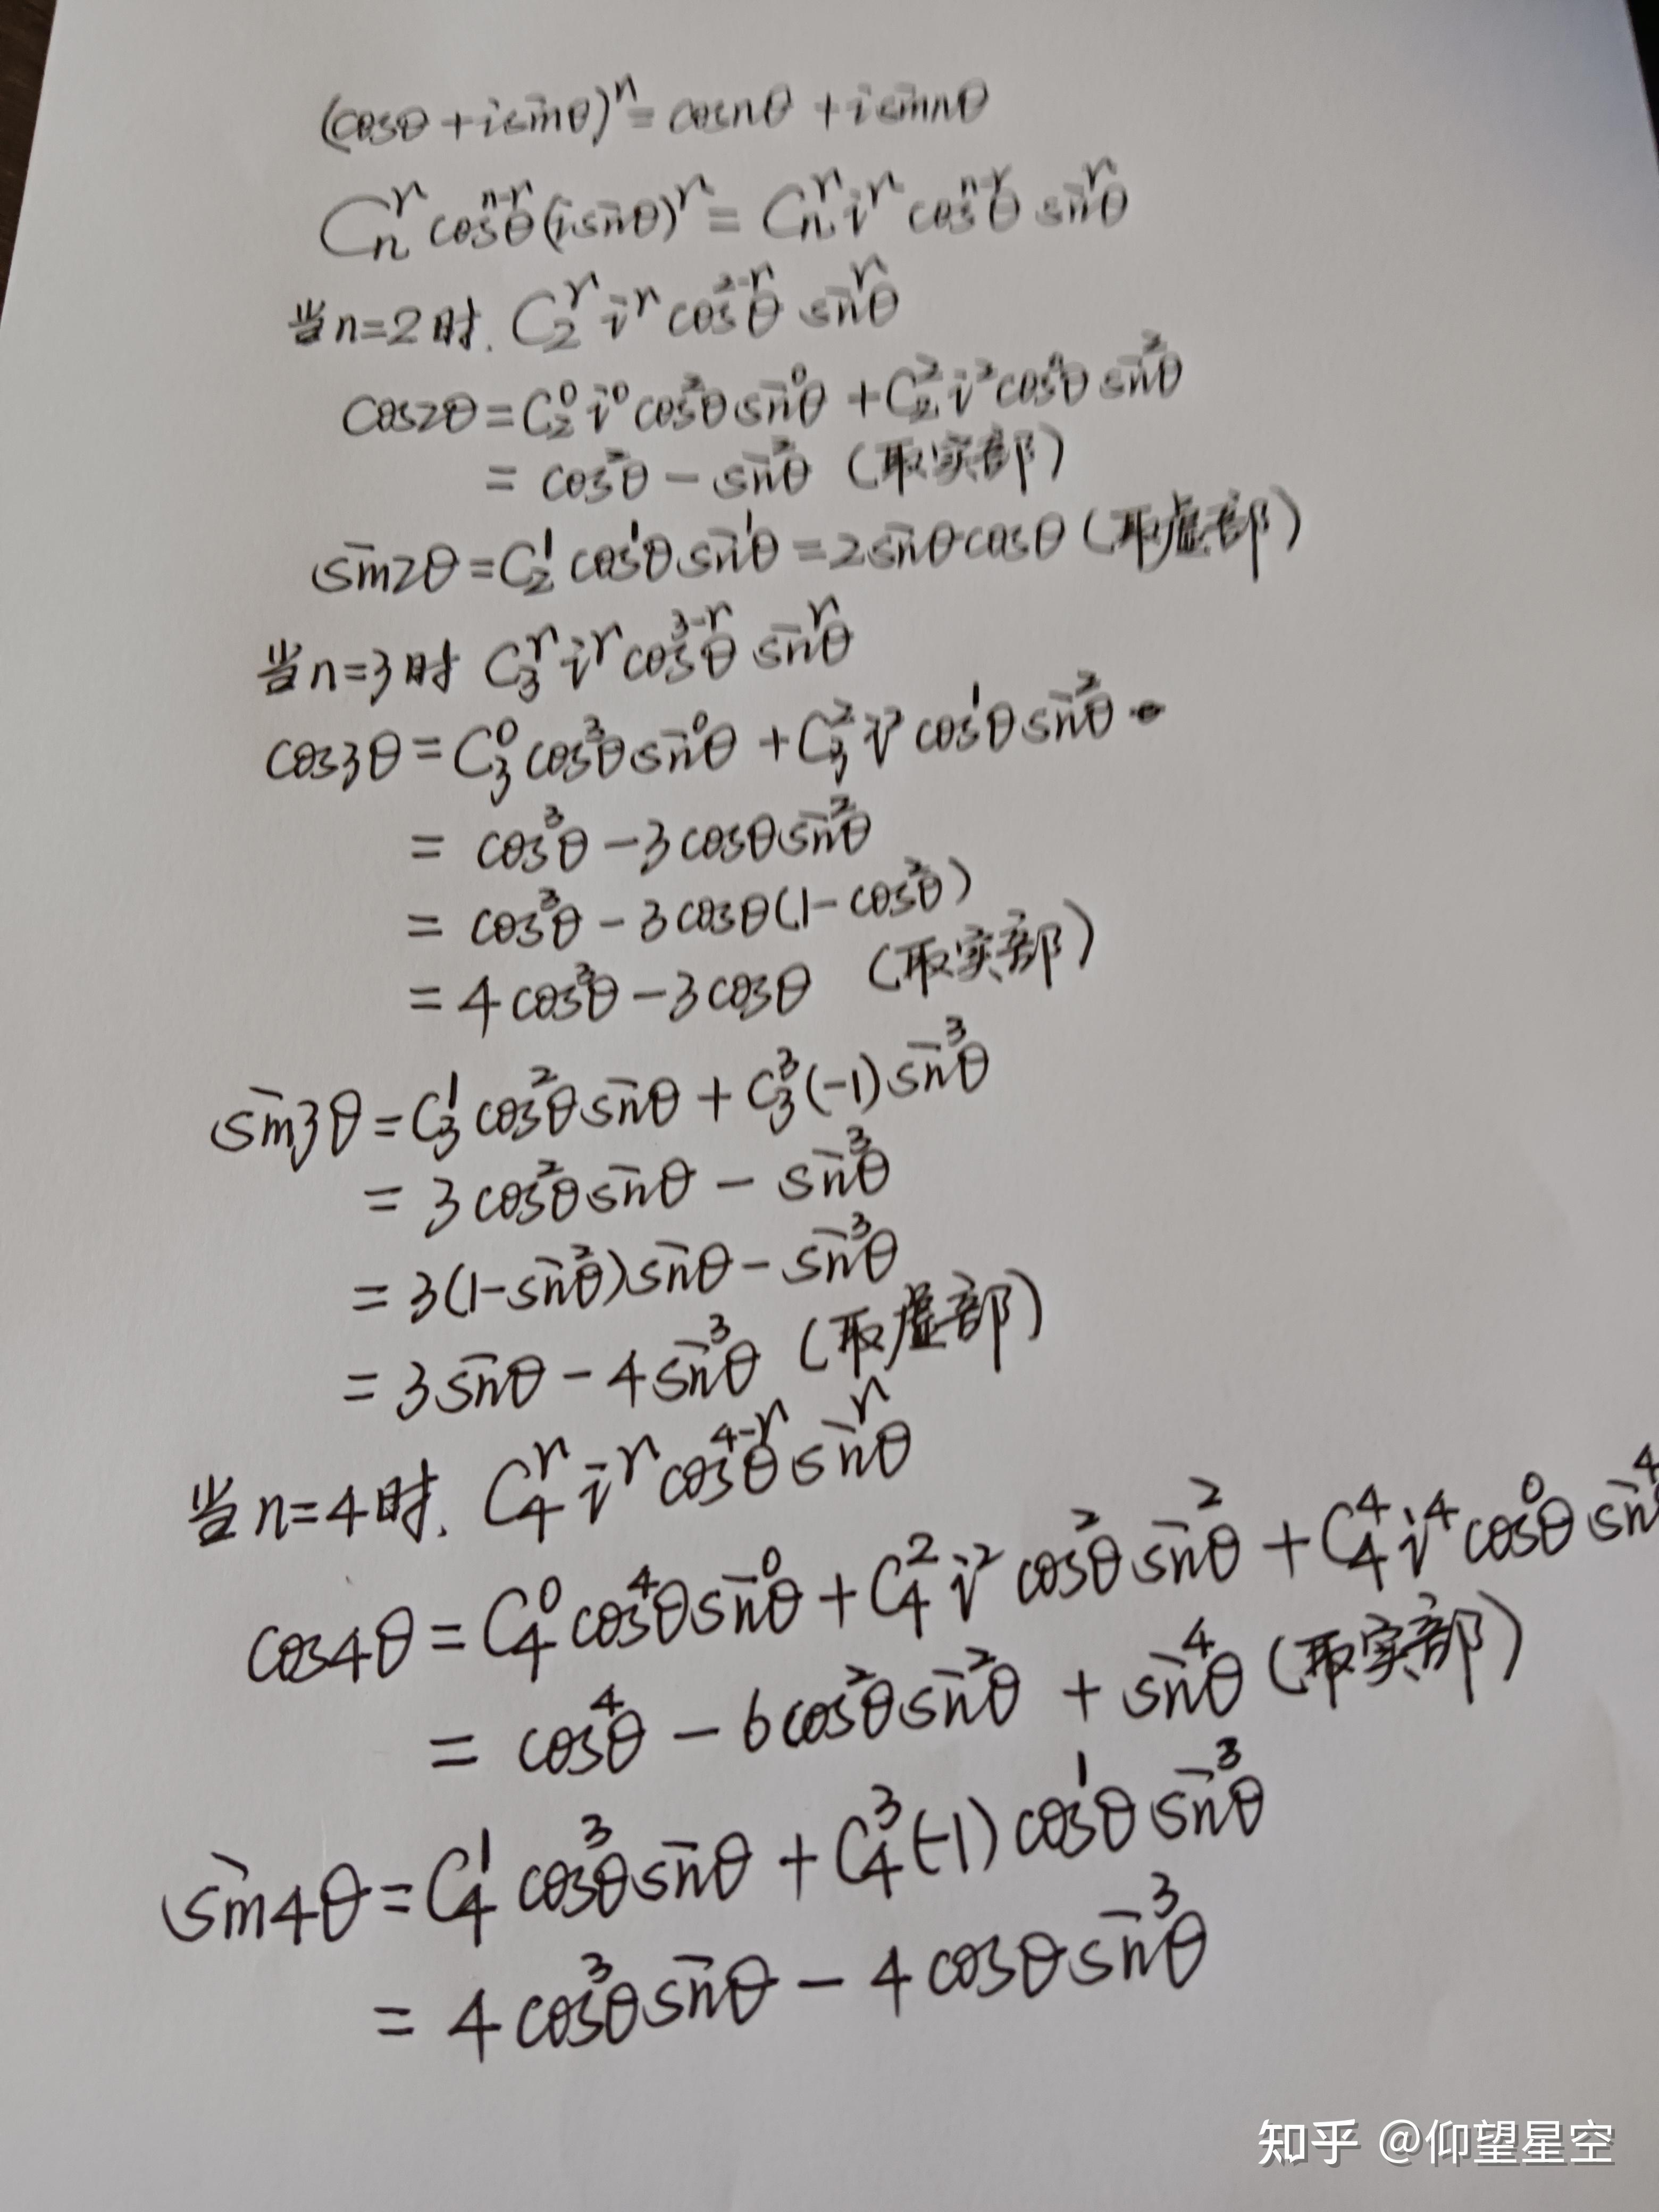 (cosθ+isinθ)ⁿ=cosnθ+isinnθ
Cₙʳcosⁿ⁻ʳθ(isinθ)ʳ=Cₙʳiʳcosⁿ⁻ʳθsinʳθ
当n=2时.C₂ʳiʳcos²⁻ʳθsinʳθ
cos2θ=C₂⁰i⁰cos²θsin⁰θ+C₂²i²cos⁰θsin²θ
=cos²θ-sin²θ(取实部)
sin2θ=C₂¹cos¹θsin¹θ=2sinθcosθ(取虚部)
当n=3时C₃ʳiʳcos³⁻ʳθsinʳθ
cos3θ=C₃⁰cos³θsin⁰θ+C₃²i²cos¹θsin²θ
=cos³θ-3cosθsin²θ
=cos³θ-3cosθ(1-cos²θ)
=4cos³θ-3cosθ(取实部)
sin3θ=C₃¹cos²θsinθ+C₃³(-1)sin³θ
=3cos²θsinθ-sin³θ
=3(1-sin²θ)sinθ-sin³θ
=3sinθ-4sin³θ(取虚部)
当n=4时.C₄ʳiʳcos⁴⁻ʳθsinʳθ
cos4θ=C₄⁰cos⁴θsin⁰θ+C₄²i²cos²θsin²θ+C₄⁴i⁴cos⁰θsin⁴θ
=cos⁴θ-6cos²θsin²θ+sin⁴θ(取实部)
sin4θ=C₄¹cos³θsinθ+C₄³(-1)cos¹θsin³θ
=4cos³θsinθ-4cosθsin³θ
知乎 @仰望星空